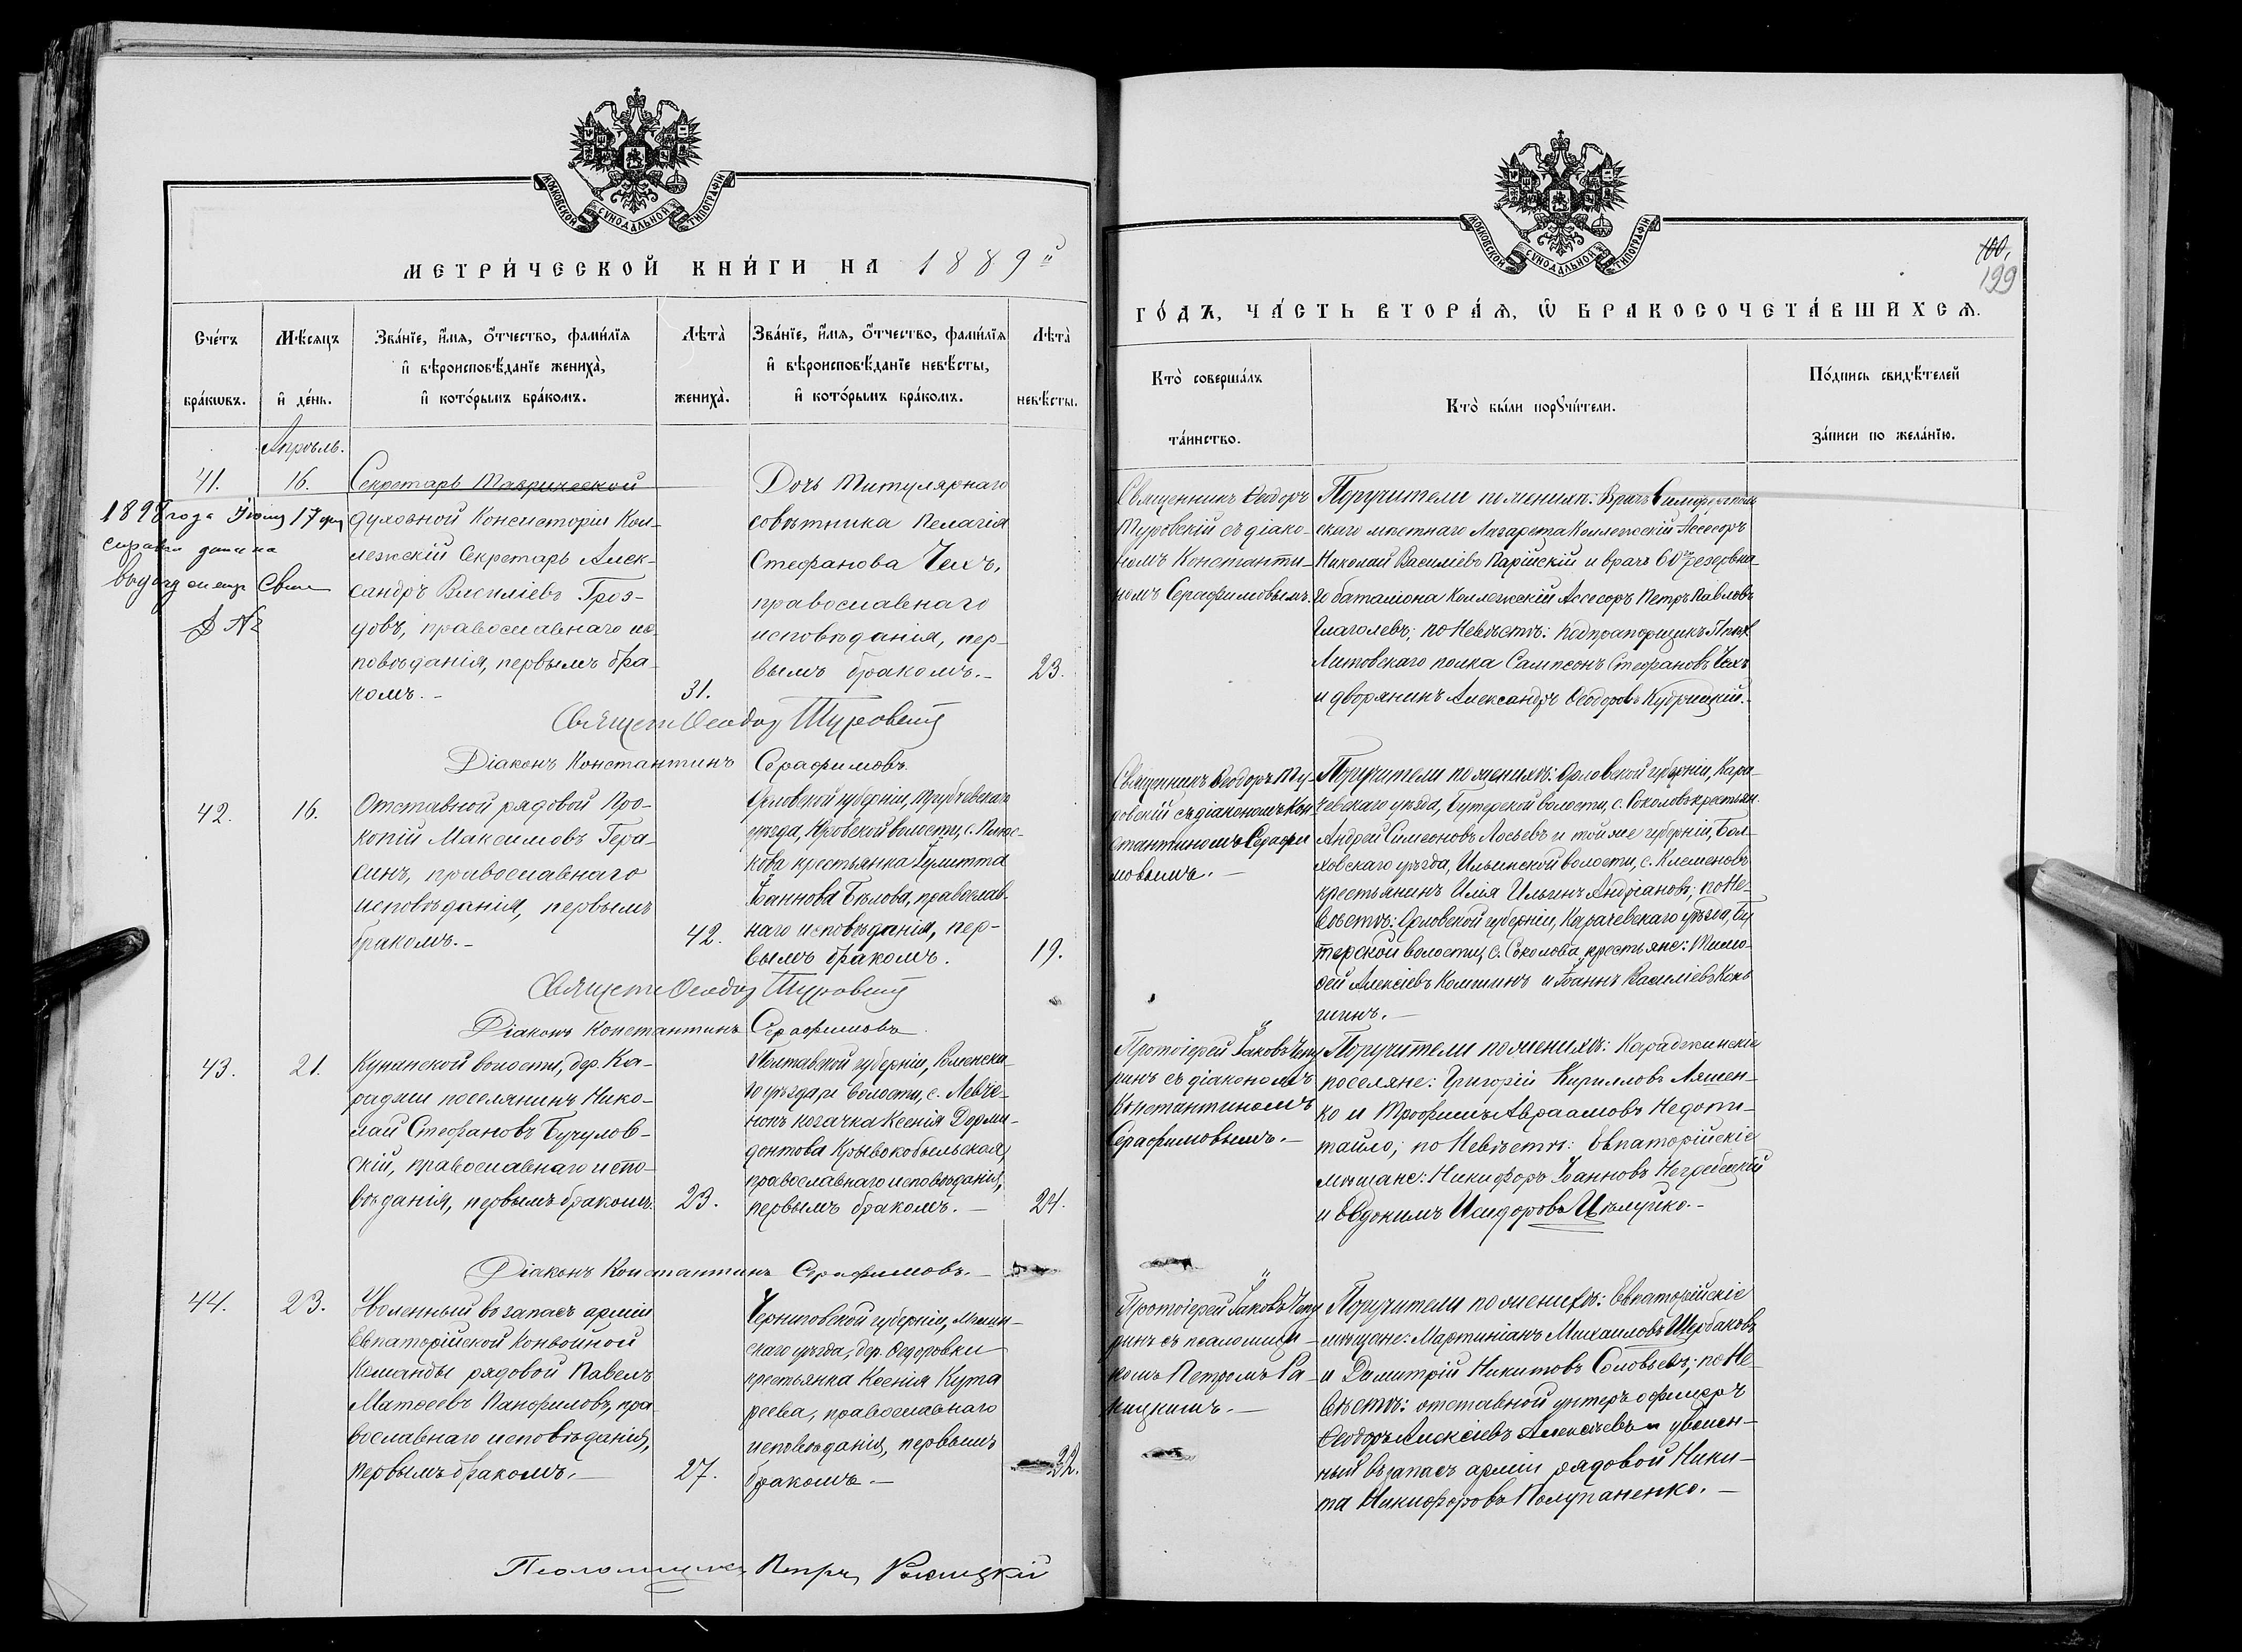 МОСКОВСКОЙ СѴНОДАЛЬНОЙ ТИПОГРАФІИ
МЕТРИ́ЧЕСКОЙ КНИ́ГИ НА 1889й
Сче́тъ бра́кѡвъ.
Мѣ́сяцъ и҆ де́нь.
Зва́нїе, и҆́мя, ѻ҆́тчество, фами́лїя
и҆ вѣроисповѣ́данїе жениха̀,
и҆ кото́рымъ бра́комъ.
Лѣта̀ жениха̀.
Зва́нїе, и҆́мя, ѻ҆́тчество, фами́лїя
и҆ вѣроисповѣ́данїе невѣ́сты,
и҆ кото́рымъ бра́комъ.
Лѣта̀ невѣ́сты.
Апрѣль.
41.
16.
Секретарь Таврической
духовной Консисторіи Кол-
лежскій Секретарь Алек-
сандръ Василіевъ Гроз-
довъ, православнаго ис-
повѣданія, первымъ бра-
комъ.-
31.
Дочь Титулярнаго
совѣтника Пелагія
Стефанова Чехъ,
православнаго
исповѣданія, пер-
вымъ бракомъ.-
23.
1898 года 17
Священ Ѳеодор Туровскій
Діаконъ Константинъ Серафимовъ
42.
16.
Отставной рядовой Про-
копій Максимовъ Гера-
синъ, православнаго
исповѣданія, первымъ
бракомъ.-
42.
Орловской губерніи, Трубчевскаго
уѣзда, волости, с.
крестьянка Іулитта
Іоаннова Бѣлова, православ-
наго исповѣданія, пер-
вымъ бракомъ.
19.
Священ Ѳеодор Туровскій
Діаконъ Константинъ Серафимовъ
43.
21.
Кунанской волости, дер. Ка-
раджи поселянинъ Нико-
лай Стефановъ Бучулов-
скій, православнаго испо-
вѣданія, первымъ бракомъ.
23.
Полтавской губерніи, Роменска-
го уѣзда волости, с. Левче-
козачка Ксенія Дорми-
донтова Крывокобыльская,
православнаго исповѣданія,
первымъ бракомъ.-
21.
Діаконъ Константинъ Серафимовъ.-
44.
23.
Уволенный въ запасъ арміи
Евпаторійской Конвойной
Команды рядовой Павелъ
Матѳеевъ Панфиловъ, пра-
вославнаго исповѣданія,
первымъ бракомъ.-
27.
Черниговской губерніи, Мглин-
скаго уѣзда, дер. Ѳедоровки
крестьянка Ксенія Кута
реева, православнаго
исповѣданія, первымъ
бракомъ.-
22.
Псаломщикъ Петръ Ракицкій
МОСКОВСКОЙ СѴНОДАЛЬНОЙ ТИПОГРАФІИ
100,
199
ГО́ДЪ, ЧА́СТЬ ВТОРА́Я, Ѡ҆ БРАКОСОЧЕТА́ВШИХСЯ.
Кто̀ соверша́лъ та́инство.
Кто̀ бы́ли порꙋчи́тели.
По́дпись свидѣ́телей
за́писи по жела́нїю.
Священникъ Ѳеодоръ
Туровскій съ діако-
номъ Константи-
номъ Серафимовымъ.
Поручители по женихѣ: Врачъ Симферополь
скаго мѣстнаго Лазарета Коллежскій Ассесоръ
Николай Василіевъ Парійскій и врачъ 60го резервна-
го баталіона Коллежскій Ассесоръ Петръ Павловъ
Глаголевъ; по Невѣстѣ: подпрапорщикъ
Литовскаго полка Сампсонъ Стефановъ Чехъ
и дворянинъ Александръ Ѳеодоровъ Кудрицкій.-
Священникъ Ѳеодоръ Ту-
ровскій съ діакономъ Кон
стантиномъ Серафи
мовымъ.-
Поручители по женихѣ: Орловской губерніи, Кара-
чевскаго уѣзда, Бутерской волости, с. Соколова крестьян.
Андрей Симеоновъ Лосьевъ и той же губерніи, Бол-
ховскаго уѣзда, Ильинской волости, с. Клеменовъ
крестьянинъ Илія Ильинъ Андріановъ; по Не-
вѣстѣ: Орловской губерніи, Карачевскаго уѣзда, Бу
терской волости, с. Соколова, крестьяне: Тимо-
ѳей Алексіевъ Комшинъ и Іоаннъ Василіевъ Конь
шинъ.-
Протоіерей Іаковъ Чепу
ринъ съ діакономъ
Константиномъ
Серафимовымъ.-
Поручители по женихѣ: Караджинскіе
поселяне: Григорій Кирилловъ Ляшен-
ко и Трофимъ Авраамовъ Недопи-
тайло; по Невѣстѣ: Евпаторійскіе
мѣщане: Никифоръ Іоанновъ Негребецкій
и Евдокимъ Исидоровъ Цѣлуйко.-
Протоіерей Іаковъ Чепу
ринъ съ псаломщи-
комъ Петромъ Ра-
кицкимъ.-
Поручители по женихѣ: Евпаторійскіе
мѣщане: Мартиніанъ Михаиловъ Щербаковъ
и Димитрій Никитовъ Соловьевъ; по Не-
вѣстѣ: отставной унтеръ офицеръ
Ѳеодоръ Алексіевъ Алексѣевъ и уволен-
ный въ запасъ арміи рядовой Ники-
та Никифоровъ Полупаненко.-